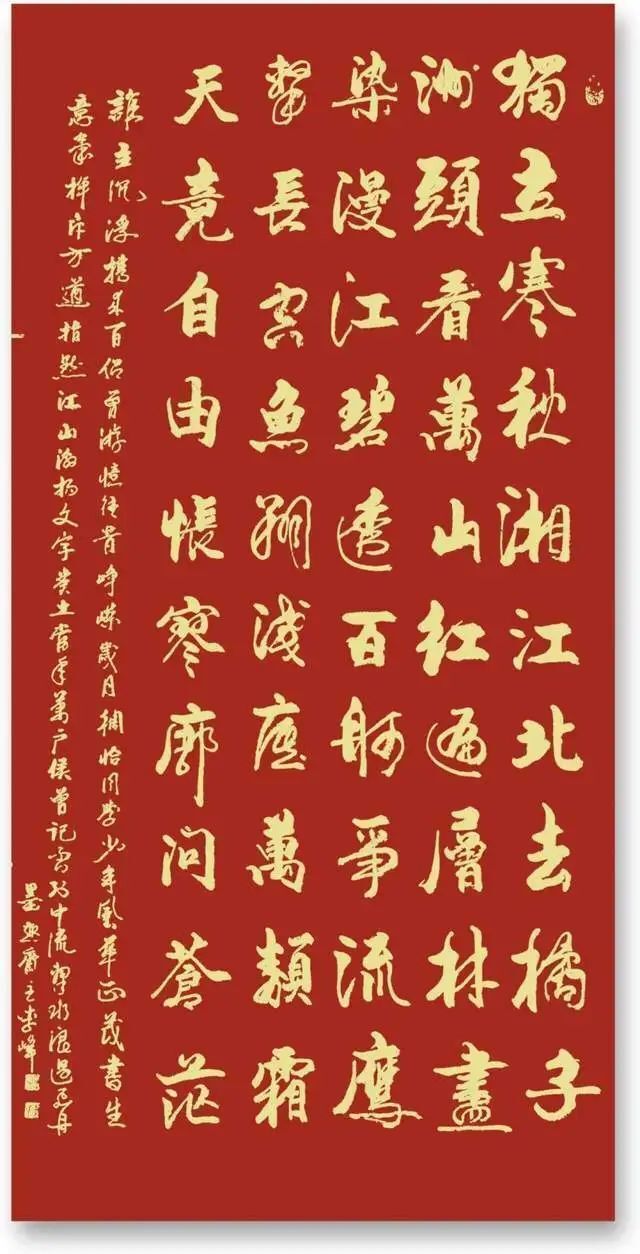 獨立寒秋湘江北去橘子
洲頭看萬山紅遍層林盡
染漫江碧透百舸爭流鷹
擊長空魚翔淺底萬類霜
天竟自由悵寥廓問蒼茫
誰主沉浮攜來百侶曾游憶往昔崢嶸歲月稠恰同學少年風華正茂書生
意氣揮斥方遒指點江山激揚文字糞土當年萬戶侯曾記否到中流擊水浪遏飛舟
墨齋主李峰